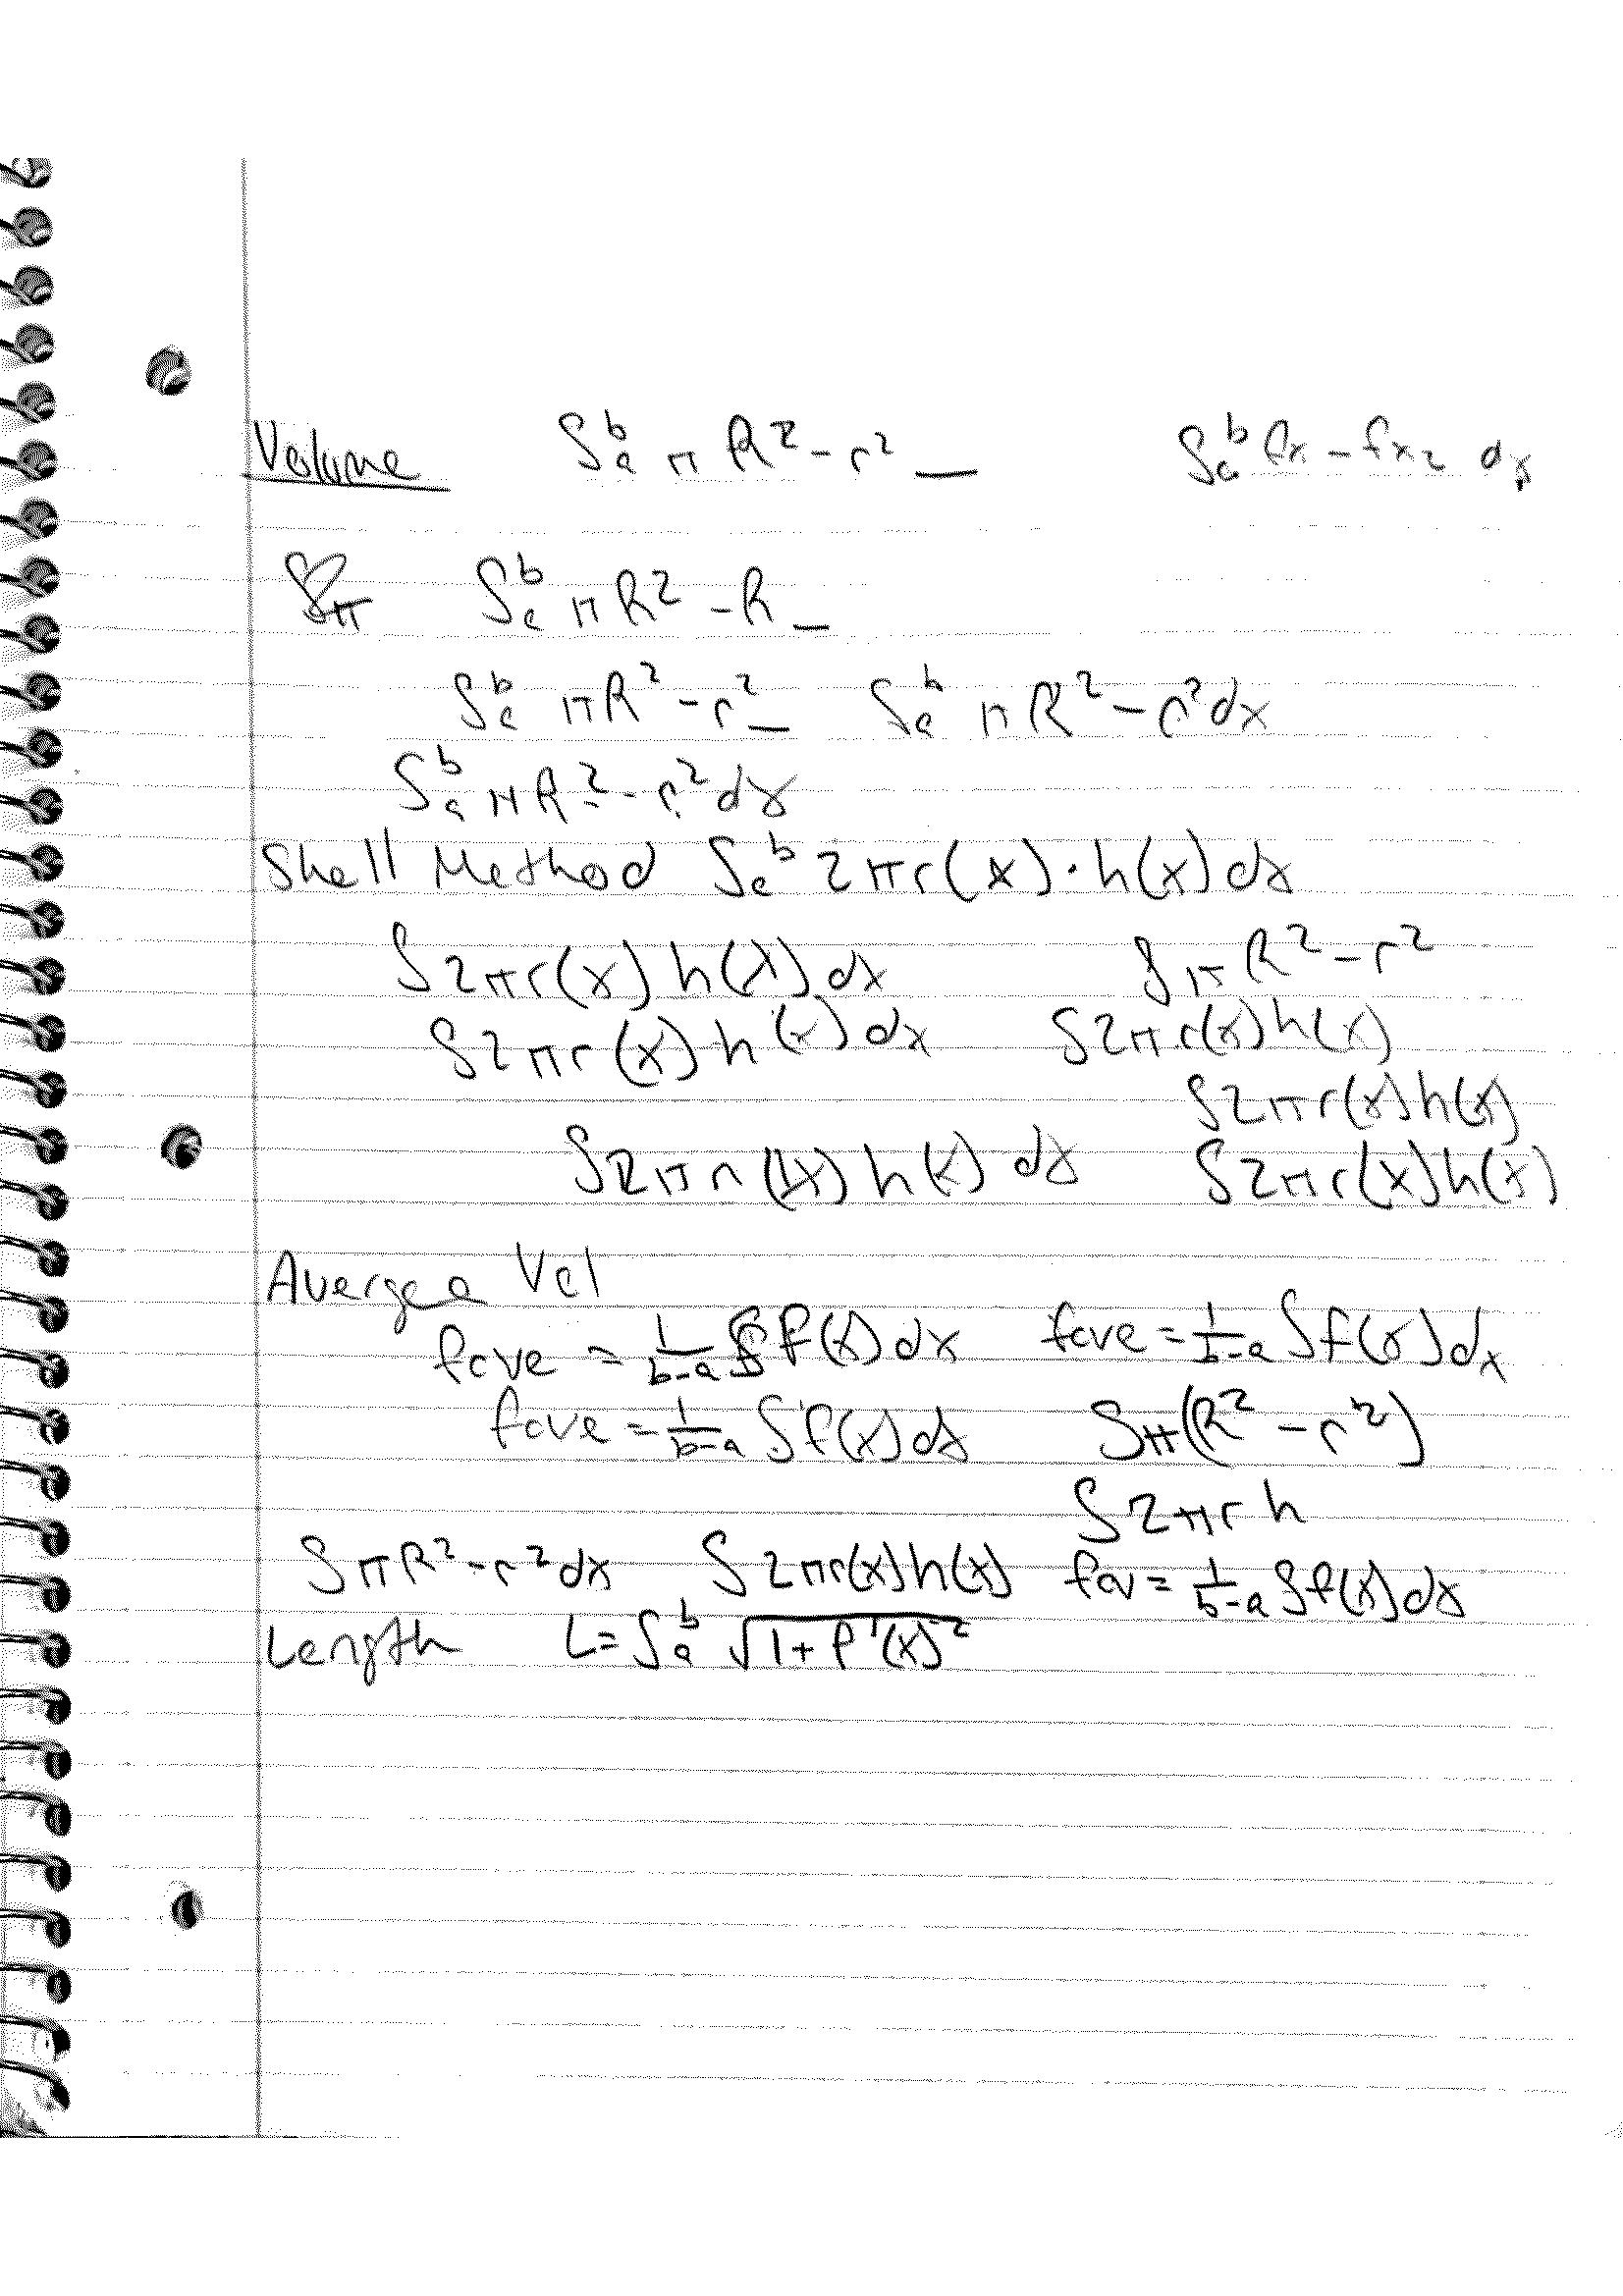 Volume ∫ₐᵇ π R² - r² _ ∫ₐᵇ fx - fx₂ dx
∫π ∫ₐᵇ π R² - R _
∫ₐᵇ π R² - r² _ ∫ₐᵇ π R² - r² dx
∫ₐᵇ π R² - r² dx
Shell Method ∫ₐᵇ 2πr(x)·h(x)dx
∫2πr(x)h(x)dx ∫πR² - r²
∫2πr(x)h(x)dx ∫2πr(x)h(x)
∫2πr(x)h(x)
∫2πr(x)h(x)dx ∫2πr(x)h(x)
Avergea Vel
fave = 1/b-a ∫f(x)dx fave = 1/b-a ∫f(x)dx
fave = 1/b-a ∫f(x)dx ∫π(R² - r²)
∫2πrh
∫πR² - r²dx ∫2πr(x)h(x) fav = 1/b-a ∫f(x)dx
Length L = ∫ₐᵇ √1+f'(x)²